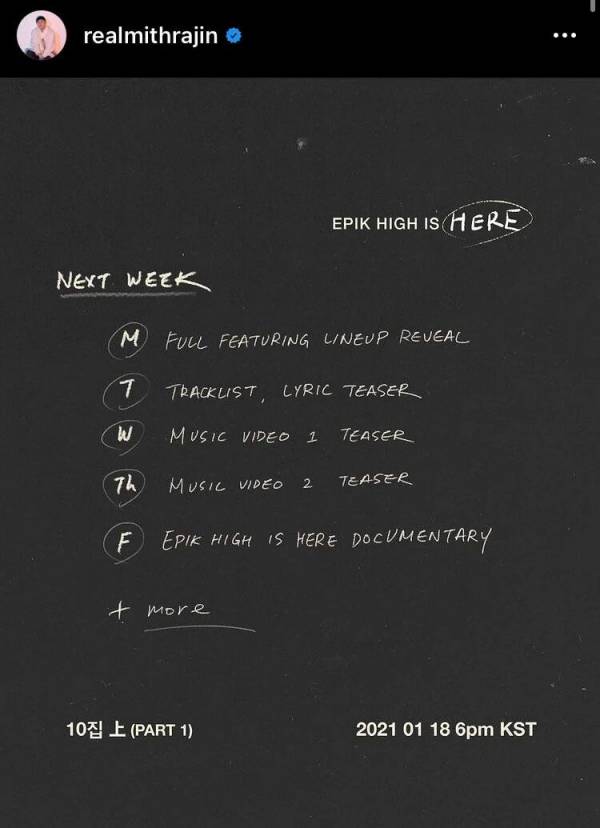 realmithrajin
EPIK HIGH IS HERE
NEXT WEEK
M FULL FEATURING LINEUP REVEAL
T TRACKLIST, LYRIC TEASER
W MUSIC VIDEO 1 TEASER
Th MUSIC VIDEO 2 TEASER
F EPIK HIGH IS HERE DOCUMENTARY
+ more
10집 上 (PART 1)
2021 01 18 6pm KST